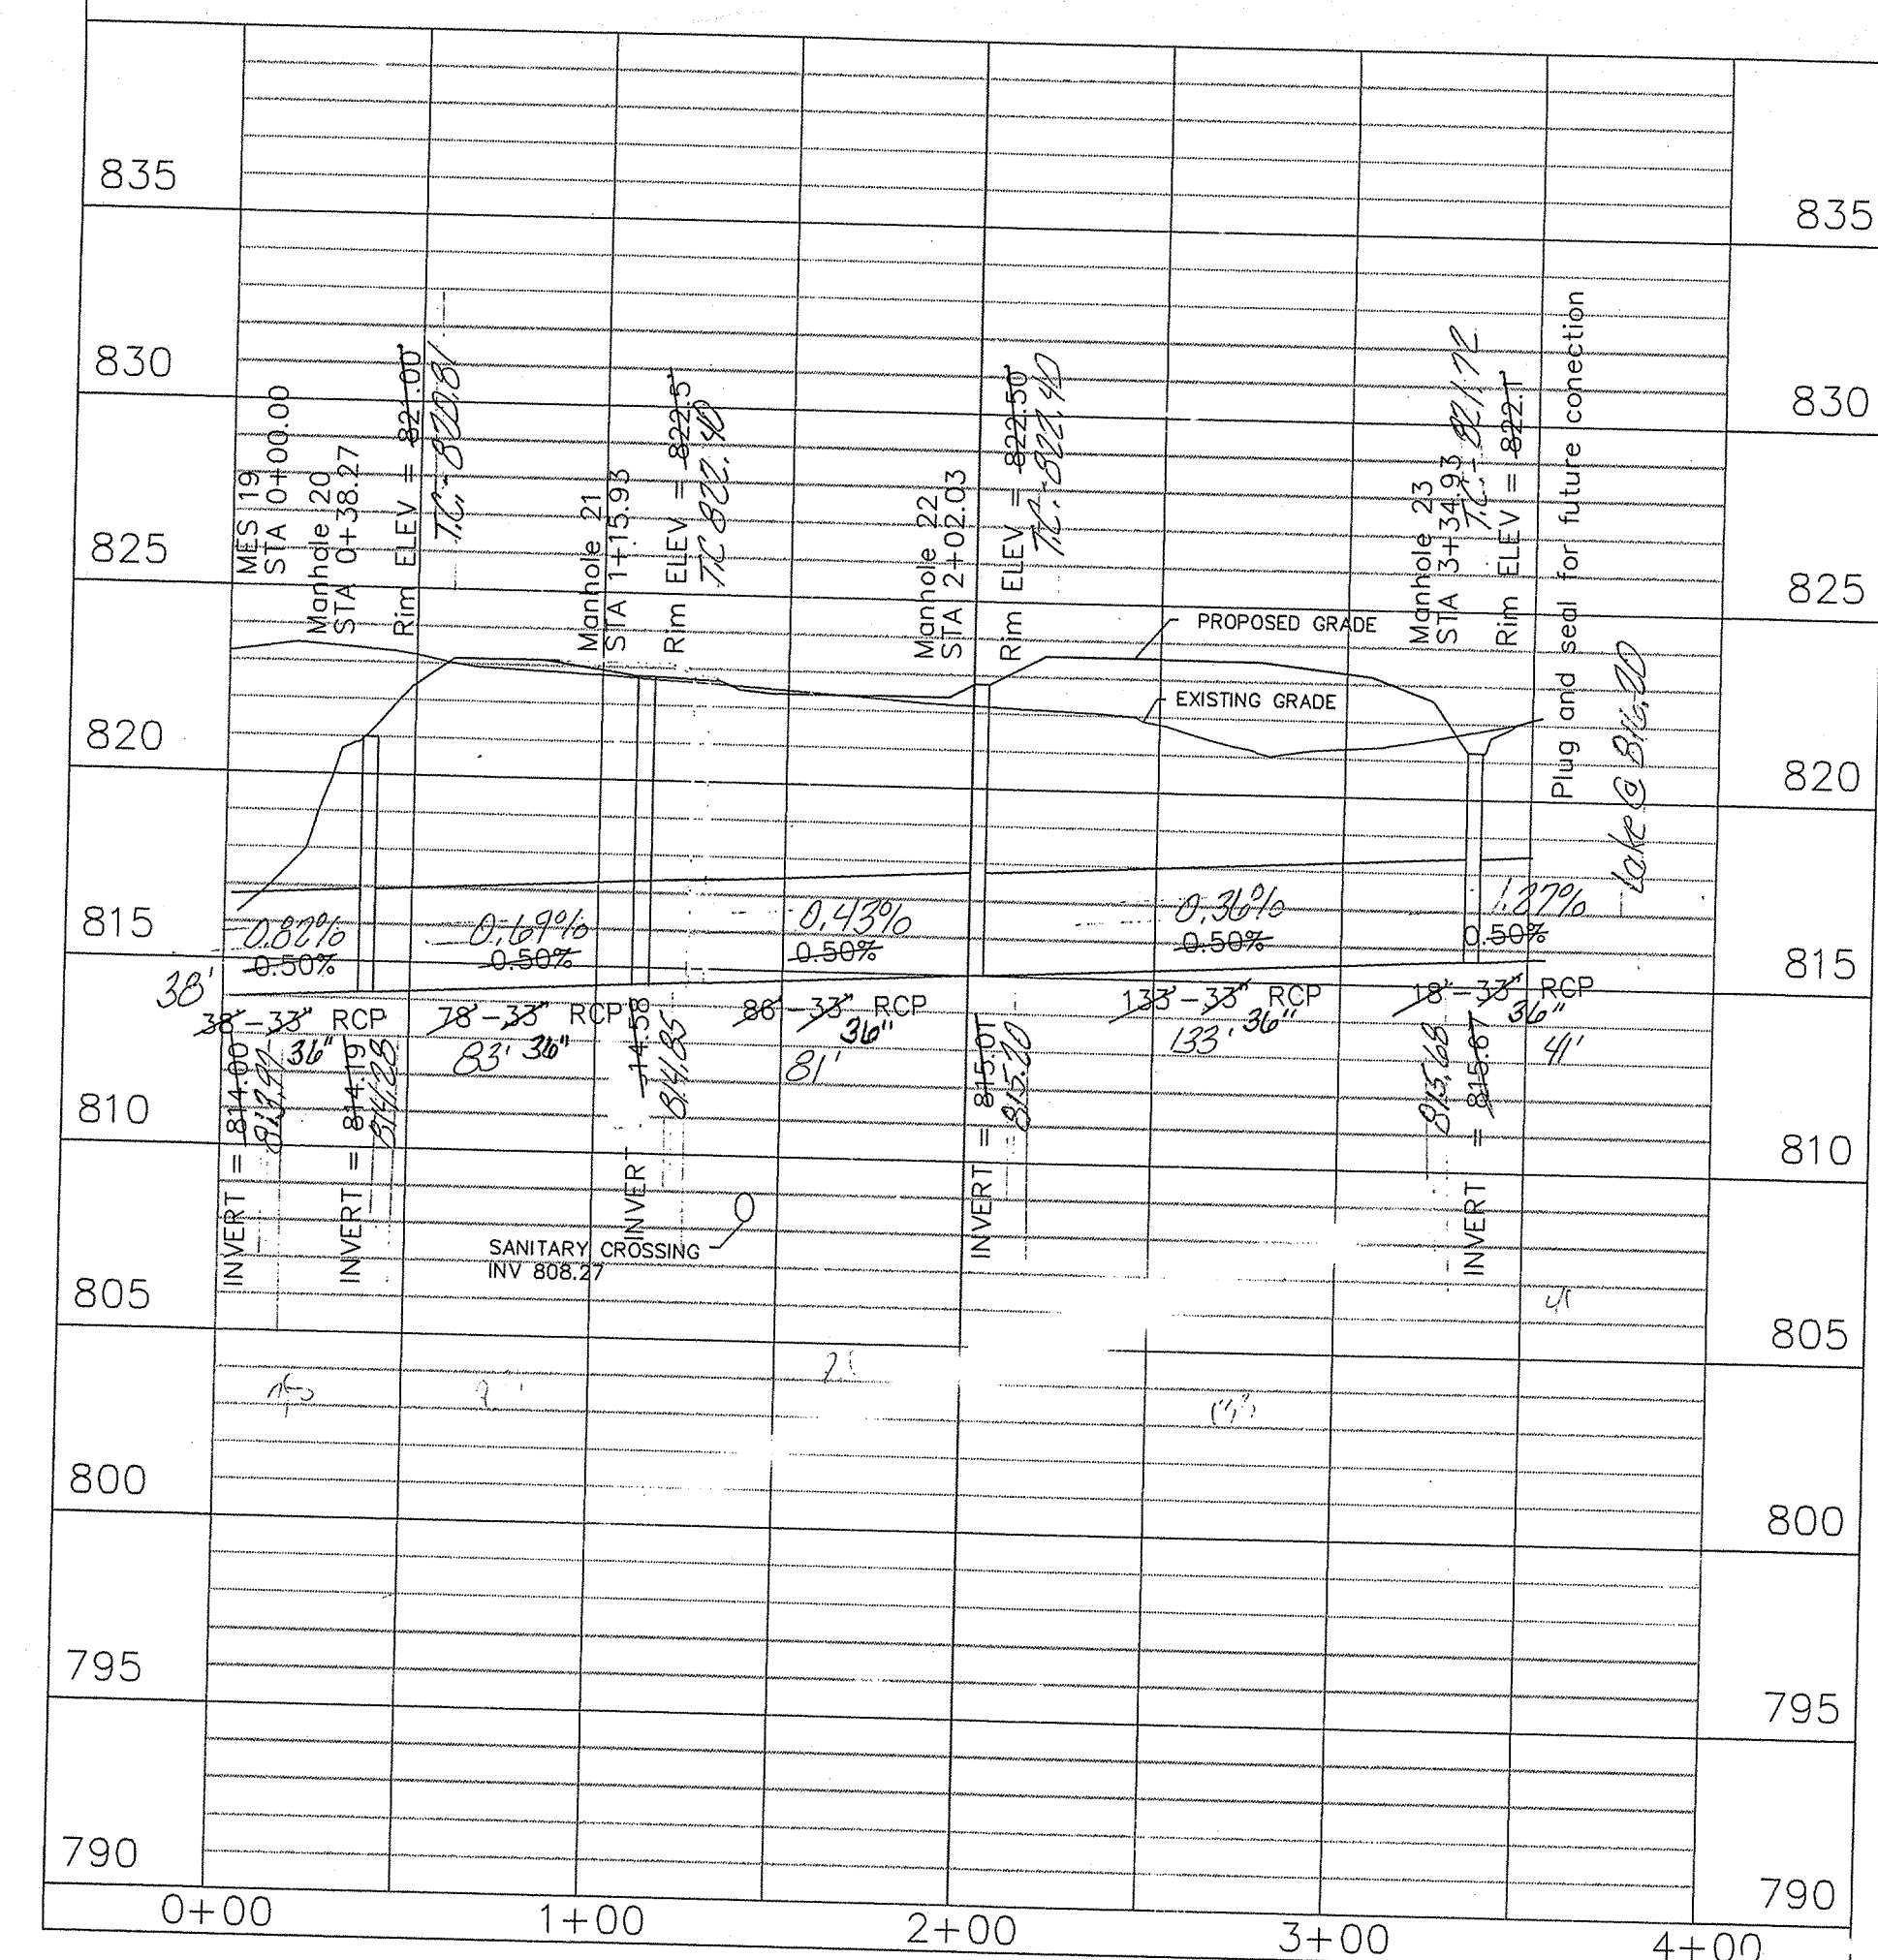 835
835
830
830
825
825
820
820
815
815
810
810
805
805
800
800
795
795
790
790
MES 19
STA 0+00.00
Manhole 20
STA 0+38.27
Rim ELEV = 821.00
T.C.- 820.81
Manhole 21
STA 1+15.93
Rim ELEV = 822.5
T.C 822.40
Manhole 22
STA 2+02.03
Rim ELEV = 822.50
T.C.-822.40
Manhole 23
STA 3+34.93
T.C.- 821.72
Rim ELEV = 822.1
Plug and seal for future conection
Lake @ 816.20
PROPOSED GRADE
EXISTING GRADE
0.82%
0.50%
0.69%
0.50%
0.43%
0.50%
0.36%
0.50%
0.50%
38'
38'-33" RCP
36"
78'-33" RCP
83' 36"
86'-33" RCP
36"
81'
133'-33" RCP
133' 36"
18'-33" RCP
36"
41'
INVERT = 814.00
813.97
INVERT = 814.19
814.28
INVERT 14.58
814.85
INVERT = 815.01
815.20
815.68
INVERT = 815.67
SANITARY CROSSING
INV 808.27
0+00
1+00
2+00
3+00
4+00